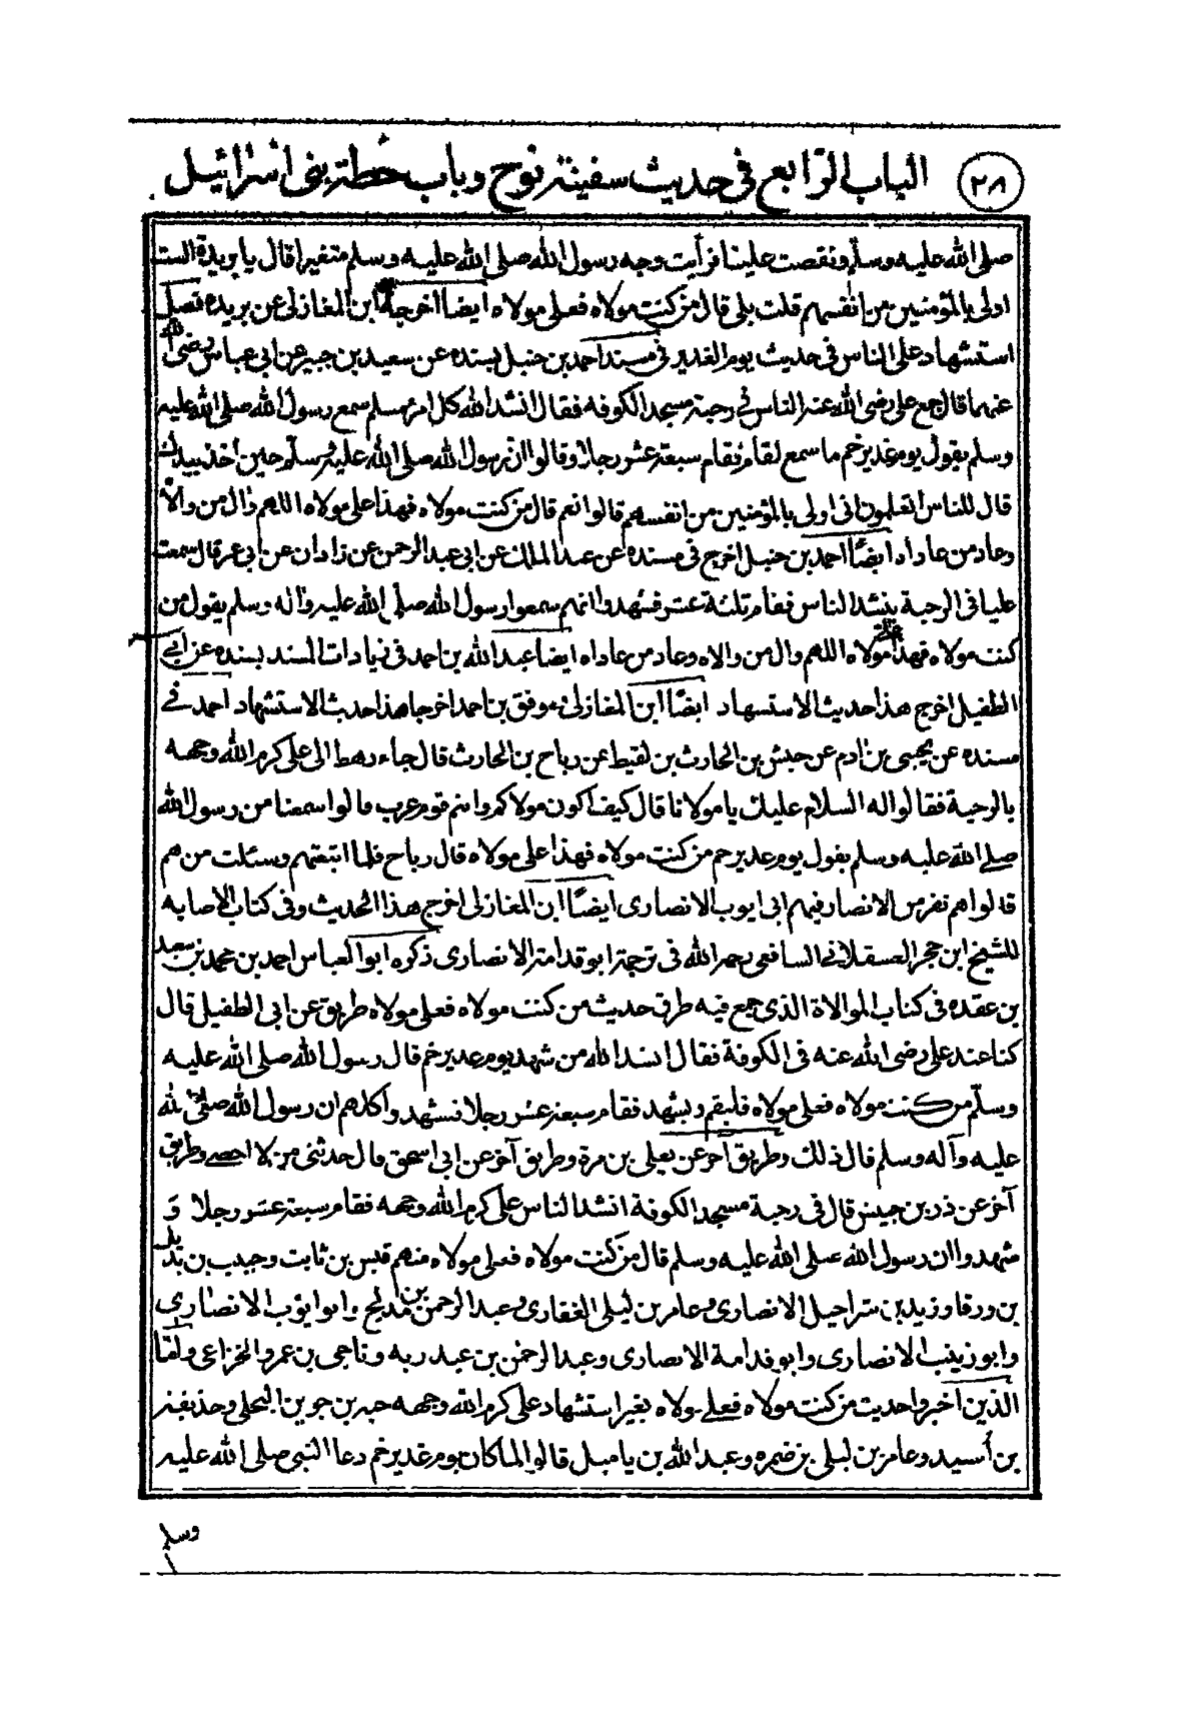 ٢٨
الباب الرابع في حديث سفينة نوح وباب حطة بني اسرائيل
صلى الله عليه وسلم ونقصت عليا فرأيت وجه رسول الله صلى الله عليه وسلم متغيرا قال يا بريدة الست
اولى بالمؤمنين من انفسهم قلت بلى قال من كنت مولاه فعلى مولاه ايضا اخرجه ابن المغازلى عن بريده فصل
استشهاد على الناس في حديث يوم الغدير في مسند احمد بن حنبل بسنده عن سعيد بن جبير عن ابي عباس رضى الله
عنهما قال جمع على رضى الله عنه الناس في رحبة مسجد الكوفه فقال انشد الله كل امرئ مسلم سمع رسول الله صلى الله عليه
وسلم يقول يوم غدير خم ما سمع لقام فقام سبعة عشر رجلا وقالوا ان رسول الله صلى الله عليه وسلم حين اخذ بيدك
قال للناس اتعلمون انى اولى بالمؤمنين من انفسهم قالوا نعم قال من كنت مولاه فهذا على مولاه اللهم وال من والاه
وعاد من عاداه ايضا احمد بن حنبل اخرج في مسنده عن عبد الملك عن ابي عبد الرحمن عن زاذان عن ابي عمر قال سمعت
عليا في الرحبة ينشد الناس فقام ثلثة عشر فشهدوا انهم سمعوا رسول الله صلى الله عليه وآله وسلم يقول من
كنت مولاه فهذا على مولاه اللهم وال من والاه وعاد من عاداه ايضا عبد الله بن احمد في زيادات المسند بسنده عن ابي
الطفيل اخرج هذا حديث الاستسهاد ايضا ابن المغازلى وموفق بن احمد اخرجا هذا حديث الاستشهاد احمد في
مسنده عن يحيى بن ادم عن حبش بن الحارث بن لقيط عن رباح بن الحارث قال جاء رهط الى على كرم الله وجهه
بالرحبة فقالوا له السلام عليك يا مولانا قال كيف اكون مولاكم وانتم قوم عرب قالوا سمعنا من رسول الله
صلى الله عليه وسلم يقول يوم غدير خم من كنت مولاه فهذا على مولاه قال رباح فلما اتبعتهم وسئلت من هم
قالوا هم نفر من الانصار فيهم ابي ايوب الانصارى ايضا ابن المغازلى اخرج هذا الحديث وفي كتاب الاصابه
للشيخ ابن حجر العسقلاني الشافعى رحمه الله في ترجمة ابو قدامة الانصارى ذكره ابو العباس احمد بن محمد بن سعيد
بن عقده في كتاب الموالاة الذى جمع فيه طرق حديث من كنت مولاه فعلى مولاه طريق عن ابي الطفيل قال
كنا عند على رضى الله عنه في الكوفة فقال انشد الله من شهد يوم غدير خم قال رسول الله صلى الله عليه
وسلم من كنت مولاه فعلى مولاه فليقم ويشهد فقام سبعة عشر رجلا فشهدوا كلهم ان رسول الله صلى الله
عليه وآله وسلم قال ذلك وطريق آخر عن يعلى بن مرة وطريق آخر عن ابي اسحق قال حدثنى من لا احصى وطريق
آخر عن ذر بن حبيش قال في رحبة مسجد الكوفة انشد الناس على كرم الله وجهه فقام سبعة عشر رجلا و
شهدوا ان رسول الله صلى الله عليه وسلم قال من كنت مولاه فعلى مولاه منهم قيس بن ثابت وحبيب بن بديل
بن ورقا وزيد بن شراحيل الانصارى وعامر بن ليلى الغفارى وعبد الرحمن بن مدلج وابو ايوب الانصارى
وابو زينب الانصارى وابو قدامة الانصارى وعبد الرحمن بن عبد ربه وناجى بن عمرو الخزاعى ولقا
الذين اخبروا حديث من كنت مولاه فعلى مولاه بغير استشهاد على كرم الله وجهه حبه بن جوين البجلى وحذيفة
بن أسيد وعامر بن ليلى بن ضمره وعبد الله بن ياميل قالوا لما كان يوم غدير خم دعا النبى صلى الله عليه
وسلم